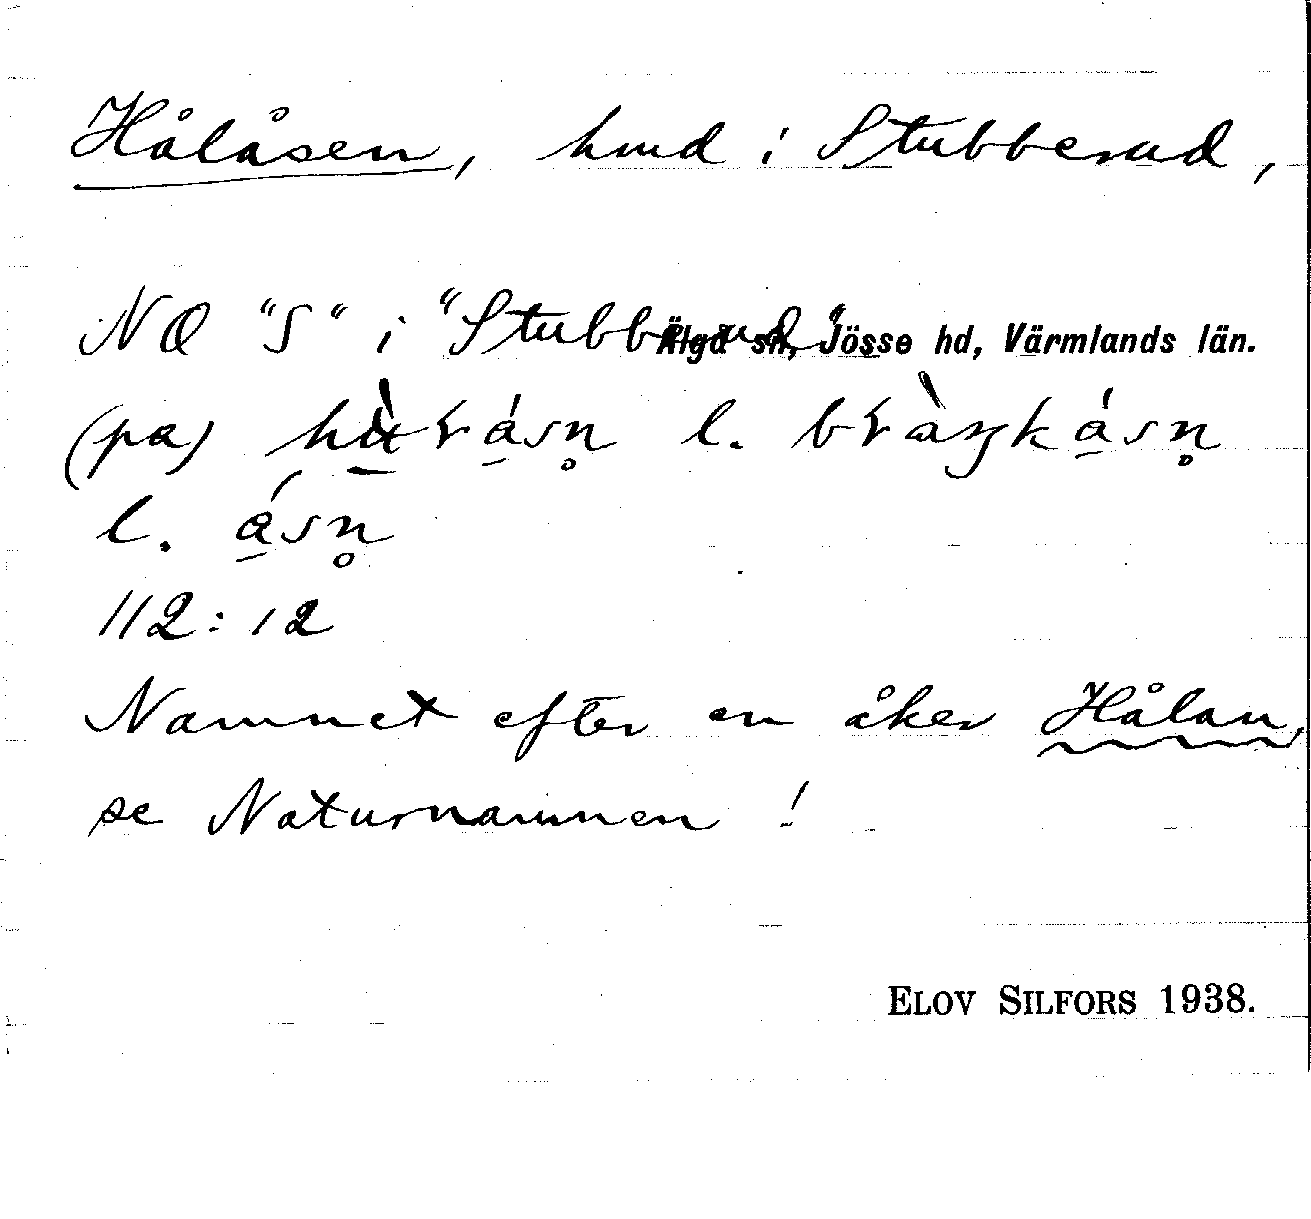 Hålåsen, hmd i Stubberud,
NO "S" i "Stubberud" Älgå sn, Jösse hd, Värmlands län.
(pa) l.
l. ásn̥
112:12
Namnet efter en åker Hålan,
se Naturnamnen !
ELOV SILFORS 1938.